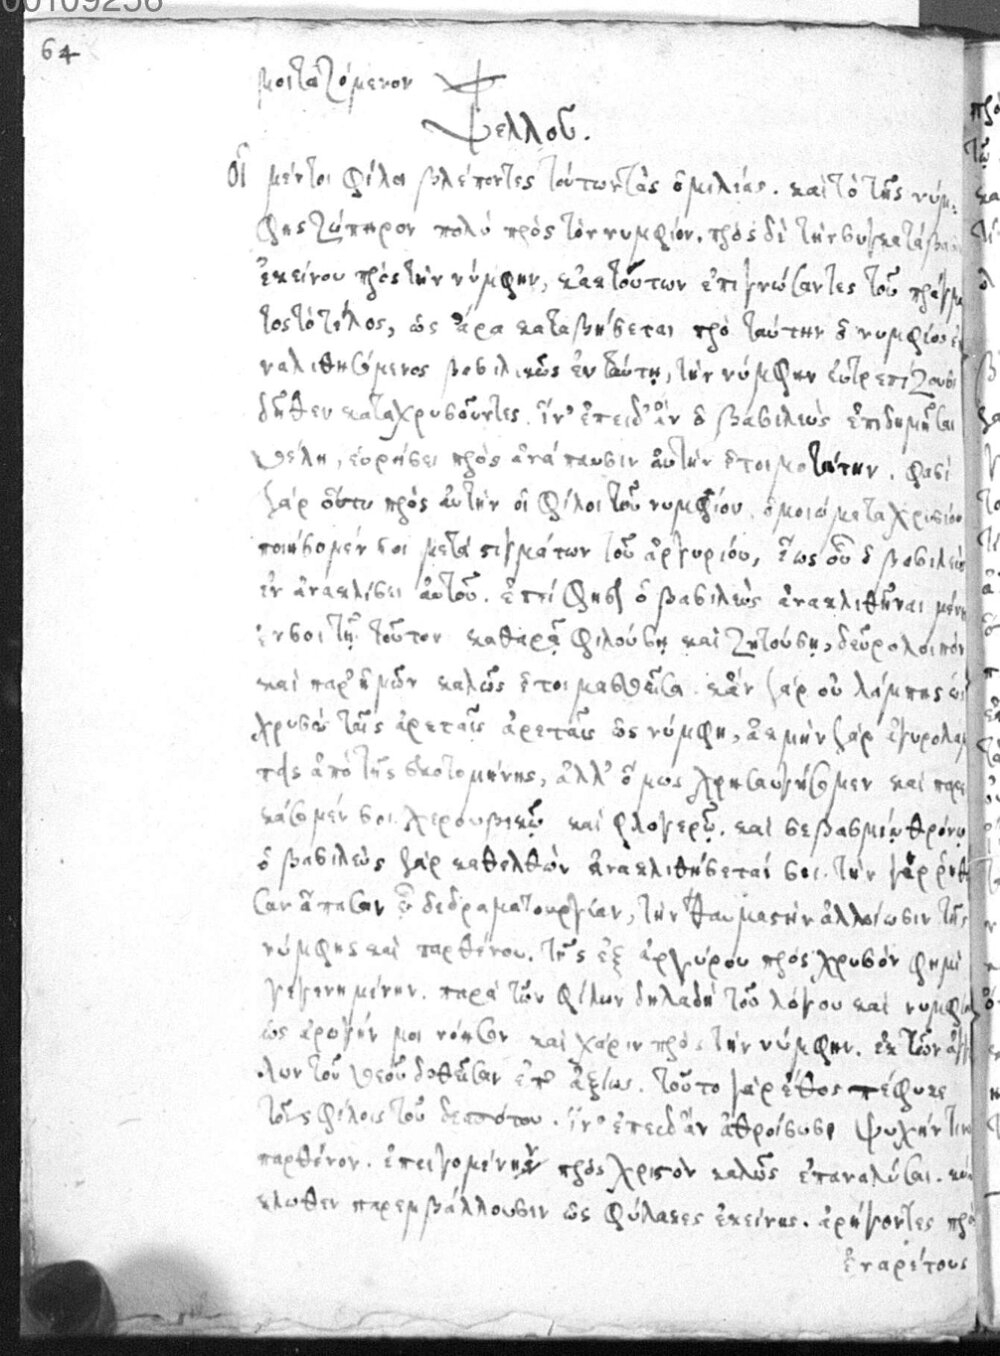 00109256
64
μοιταζόμενον
Ψελλοῦ.
Οἱ μέντοι φίλοι βλέποντες τούτων τὰς ὁμιλίας. καὶ τὸ τῆς νύμ-
φης ζώπηρον πολύ πρὸς τὸν νυμφίον. πρὸς δὲ τὴν συγκατάβασιν
ἐκείνου πρὸς τὴν νύμφην, κἀκ τούτων ἐπιγνώσαντες τοῦ πράγμα
τος τὸ τέλος, ὡς ἄρα καταβήσεται πρὸ ταύτην ὁ νυμφίος
ναλιθησόμενος βασιλικῶς ἐν ταύτῃ, τὴν νύμφην εὐτρεπίζουσι
δῆθεν καταχρυσοῦντες. ἵν' ἐπειδ' ἂν ὁ βασιλεὺς ἐπιδημῆσαι
θέλῃ, εὑρήσει πρὸς ἀνάπαυσιν αὐτὴν ἑτοιμοτάτην. φασὶ
γὰρ οὕτω πρὸς αὐτὴν οἱ φίλοι τοῦ νυμφίου. ὁμοιώματα χρυσίου
ποιήσομέν σοι μετὰ στιγμάτων τοῦ ἀργυρίου, ἕως οὗ ὁ βασιλεὺς
ἐν ἀνακλίσει αὐτοῦ. ἐπεὶ ὁ βασιλεὺς ἀνακλιθῆναι
ἐν σοι τῇ τοῦτον καθαρᾷ φιλούσῃ καὶ ζητούσῃ, δεῦρο λοιπὸν
καὶ παρ' ἡμῶν καλῶς ἑτοιμασθεῖσα. κἂν γὰρ οὐ λάμπῃς ὡς
χρυσὸς ταῖς ἀρεταῖς ἀρεταῖς ὡς νύμφη, ἀκμὴν γὰρ ἀργυρολαμ
πεῖς ἀπὸ τῆς σκοτομήνης, ἀλλ' ὅμως χρησαυγήσομεν καὶ παρει
κάσομέν σοι χερουβικῷ καὶ φλογερῷ. καὶ σεβασμίῳ θρόνῳ
ὁ βασιλεὺς γὰρ κατελθὼν ἀνακλιθήσεταί σοι. τὴν γὰρ ῥηθεῖ
σαν ἅπασαν δεδραματουργίαν, τὴν θαυμαστὴν ἀλλοίωσιν τῆς
νύμφης καὶ παρθένου. τῆς ἐξ ἀργύρου πρὸς χρυσὸν φημὶ
γεγενημένην. παρὰ τῶν φίλων δηλαδὴ τοῦ λόγου καὶ νυμφίου
ὡς ἀρωγήν μοι νόησον καὶ χάριν πρὸς τὴν νύμφην. ἐκ τῶν ἀγγέ
λων τοῦ θεοῦ δοθεῖσαν ἐπ' ἀξίως. τοῦτο γὰρ ἔθος πέφυκε
τοῖς φίλοις τοῦ δεσπότου. ἵν' ἐπειδ' ἂν ἀθροίσωσι ψυχήν τινα
παρθένον. ἐπειγομένην πρὸς χριστὸν καλῶς ἐπαναλύσαι. κύ
κλωθεν παρεμβάλλουσιν ὡς φύλακες ἐκείνης. ἀρήγοντες πρὸς
ἐναρέτους